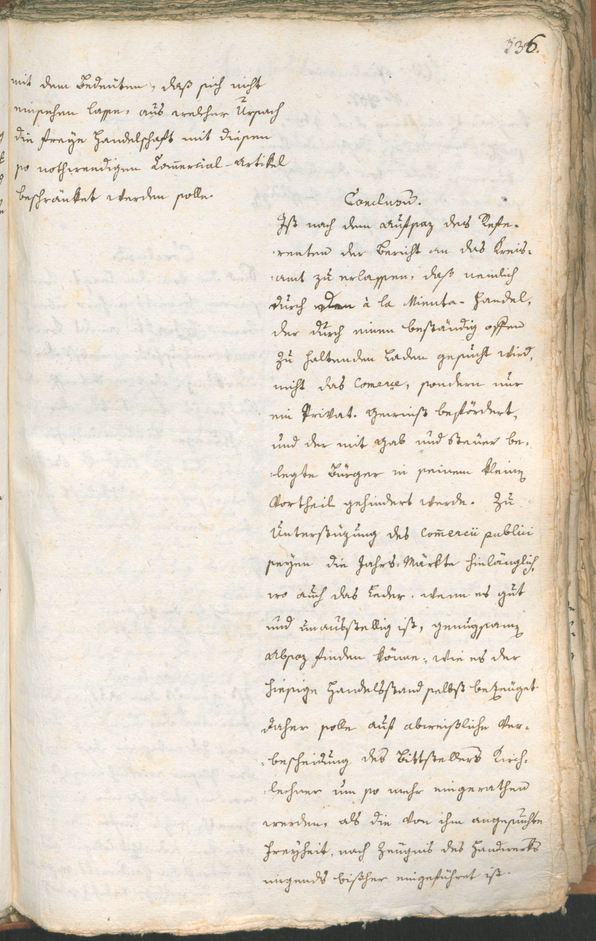 536.
mit dem Bedeuten, daß sich nicht
einsehen lasse, aus welcher Ursach
die freye Handelschaft mit diesem
so nothwendigen Commercial-Artikel
beschränket werden solle.
Conclusum.
Ist nach dem Aufsaz des Refe-
renten der Bericht an das Kreis-
amt zu erlassen, daß nemlich
durch den à la Minuta-Handel,
der durch einen beständig offen
zu haltenden Laden gesucht wird,
nicht das Comerce, sondern nur
ein Privat-Gewinst befördert,
und der mit Gab und Steuer be-
legte Bürger in seinem kleinen
Vortheil gehindert werde. Zu
Unterstüzung des Comercii publici
seyen die Jahrs-Märkte hinlänglich,
wo auch das Leder, wenn es gut
und unausstellig ist, genugsamen
Absaz finden könne, wie es der
hiesige Handelsstand selbst bezeuget.
Daher solle auf abweißliche Ver-
bescheidung des Bittstellers Kirch-
lechner um so mehr eingerathen
werden, als die von ihm angesuchte
Freyheit, nach Zeugnis des Handwerks
nirgends bißher eingeführet ist.